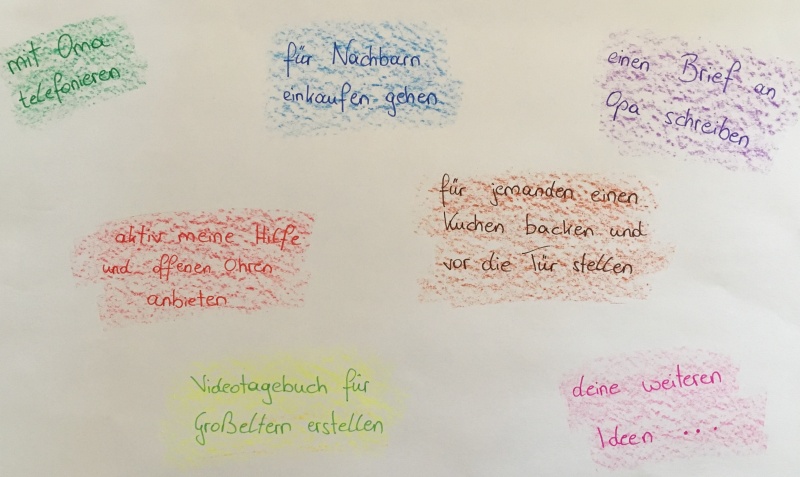 mit Oma
telefonieren
für Nachbarn
einkaufen gehen
einen Brief an
Opa schreiben
aktiv meine Hilfe
und offenen Ohren
anbieten
für jemanden einen
Kuchen backen und
vor die Tür stellen
Videotagebuch für
Großeltern erstellen
deine weiteren
Ideen ...